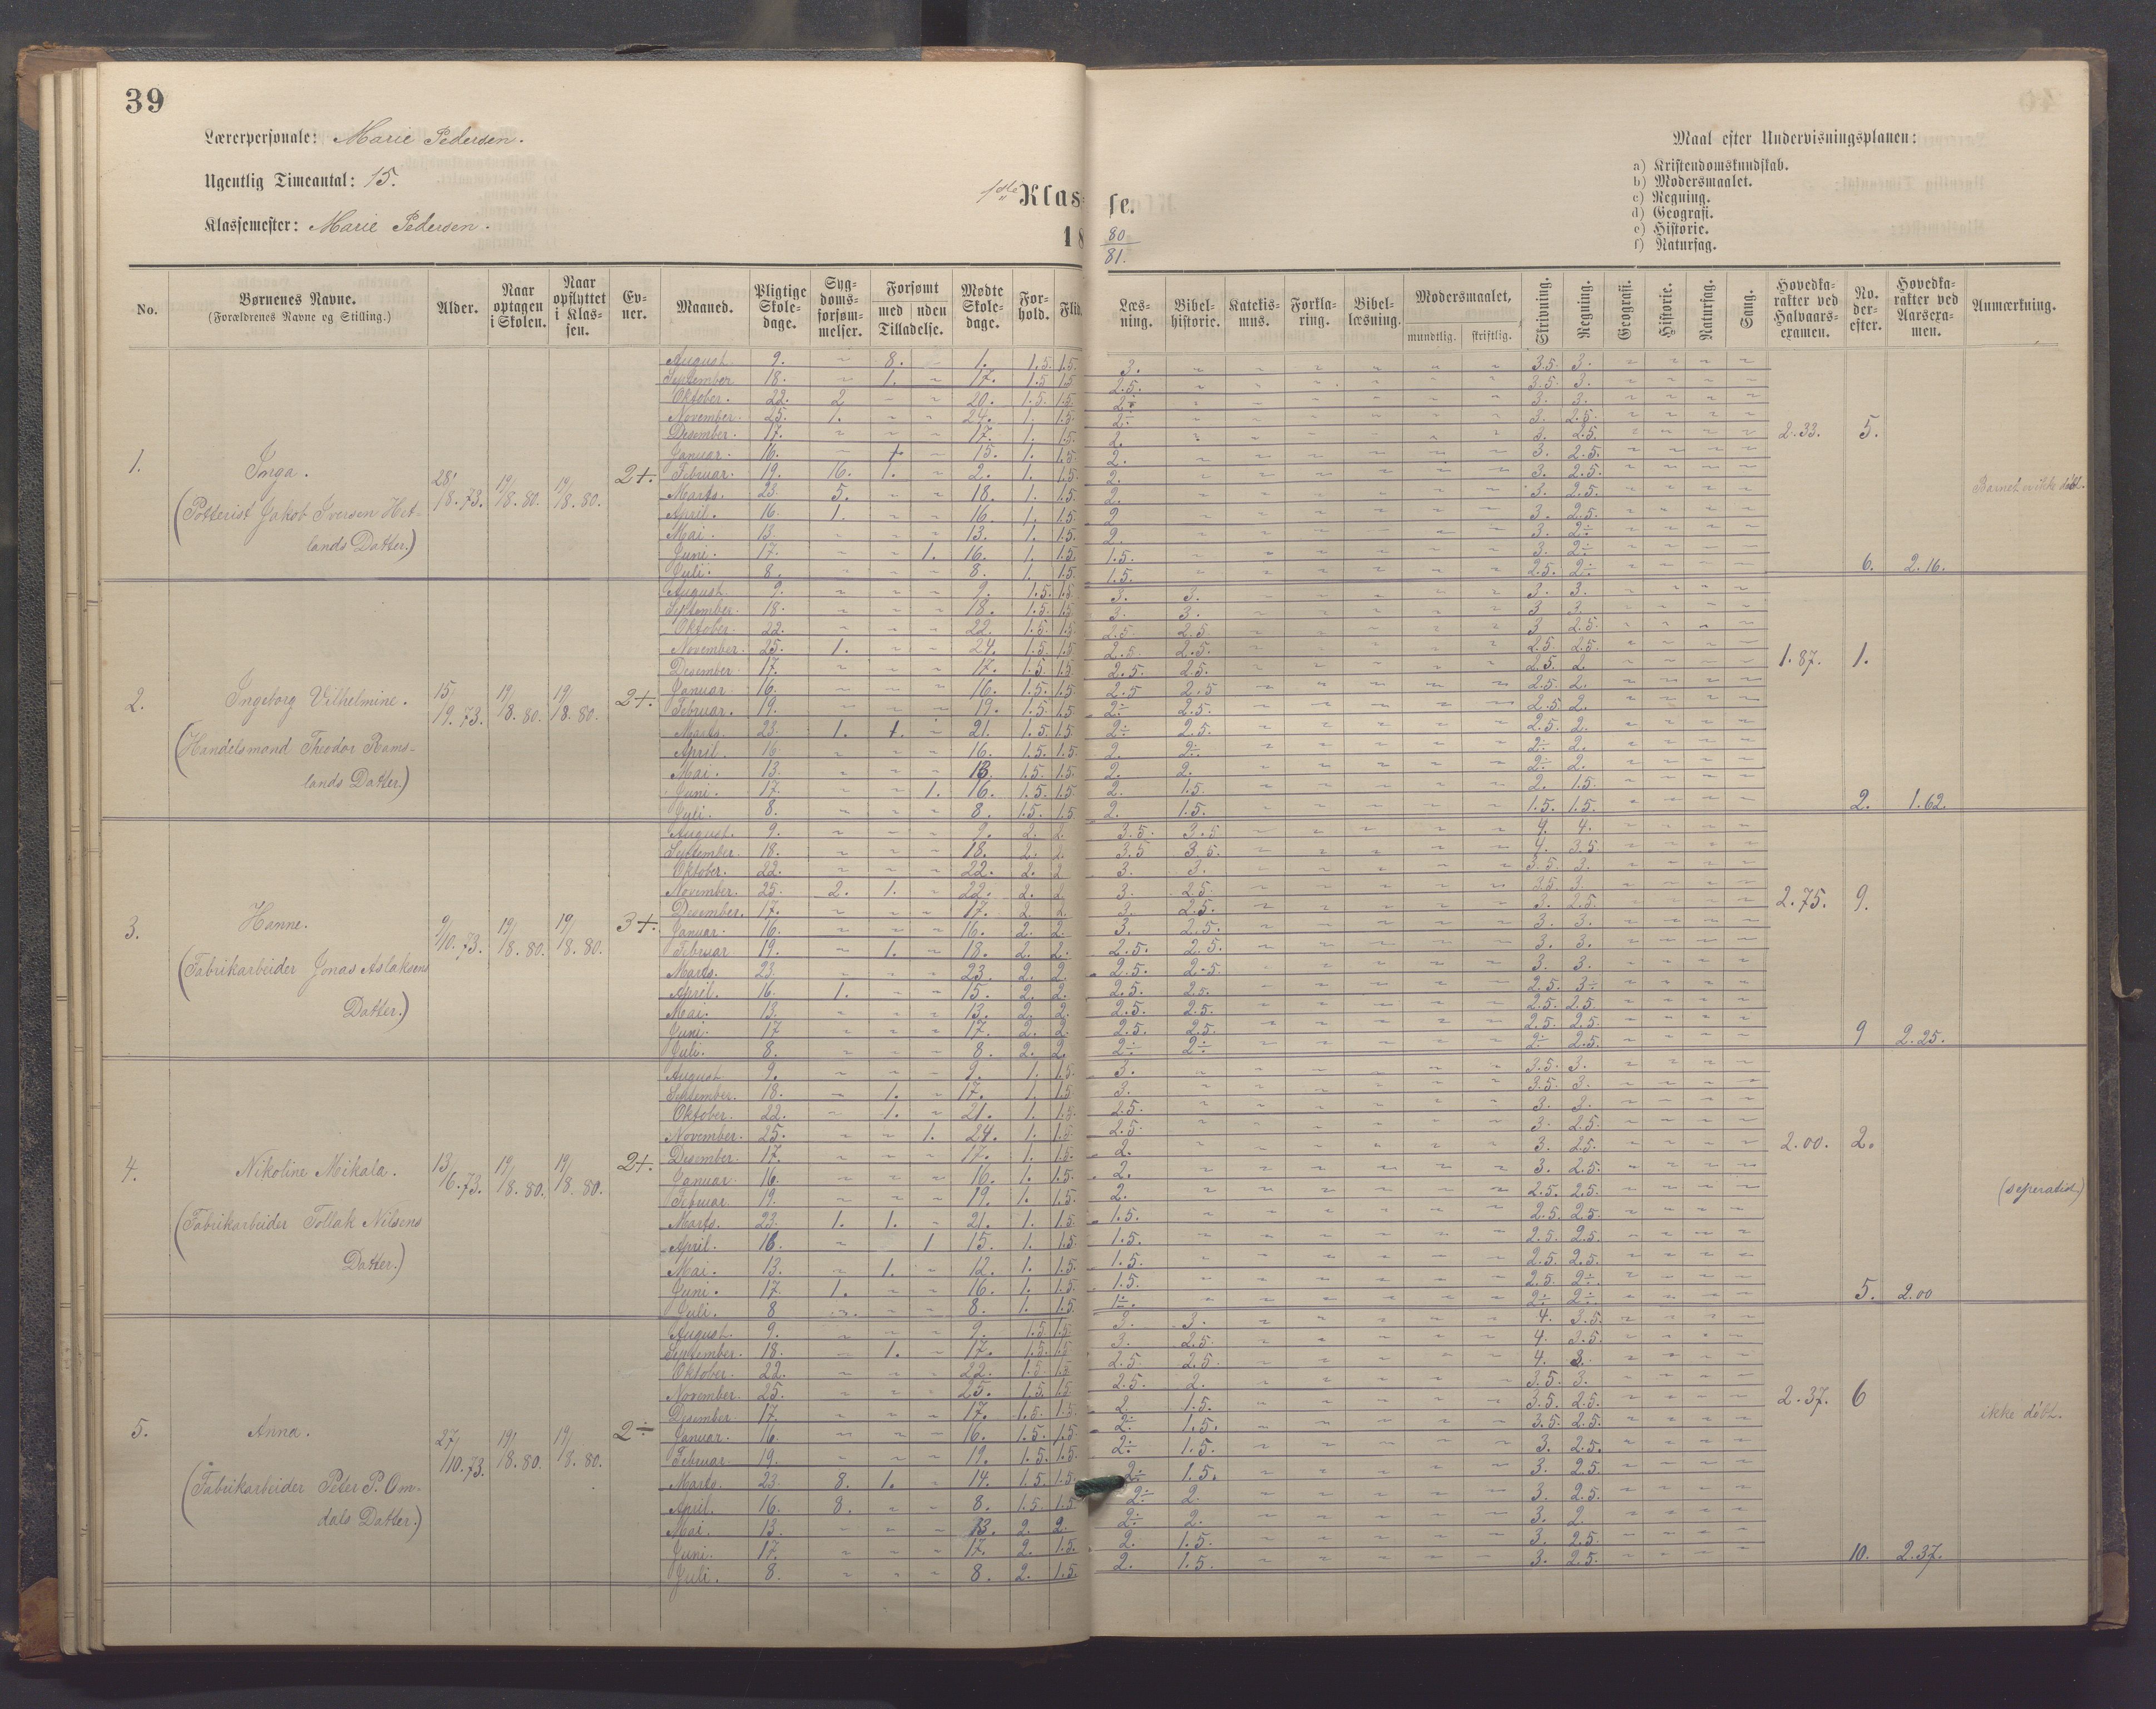 39
Lærerpersonale: Marie Pedersen.
Ugentlig Timeantal: 15.
Klassemester: Marie Pedersen.
1ste Klas- se.
18 80/81.
Maal efter Undervisningsplanen:
a) Kristendomskundskab.
b) Modersmaalet.
c) Regning.
d) Geografi.
e) Historie.
f) Naturfag.
No. | Børnenes Navne. (Forældrenes Navne og Stilling.) | Alder. | Naar optagen i Skolen. | Naar opflyttet i Klassen. | Evner. | Maaned. | Pligtige Skoledage. | Sygdomsforsømmelser. | Forsømt med uden Tilladelse. | Mødte Skoledage. | Forhold. | Flid. | Læsning. | Bibelhistorie. | Katekismus. | Forklaring. | Bibellæsning. | Modersmaalet, mundtlig. skriftlig. | Skrivning. | Regning. | Geografi. | Historie. | Naturfag. | Sang. | Hovedkarakter ved Halvaarsexamen. | No. derefter. | Hovedkarakter ved Aarsexamen. | Anmærkning.
1. Inga. 28/8.73. 19/8.80. 19/8.80. 2+.
(Potterist Jakob Iversen Hetlands Datter.)
August. 9. ~ 8. 1. 1.5. 1.5. 3. 3.5. 3.
September. 18. ~ 1. ~ 17. 1.5 1.5 2.5. 3.5. 3.
Oktober. 22. 2 ~ ~ 20. 1.5. 1.5. 2÷ 3. 3.
November. 25. 1. ~ ~ 24. 1. 1.5 2÷ 3. 2.5.
Desember. 17. ~ ~ ~ 17. 1. 1.5. 2. 3. 2.5. 2.33. 5.
Januar. 16. ~ 1. ~ 15. 1. 1.5 2. 3. 2.5.
Februar. 19. 16. 1. ~ 2. 1. 1.5 2. 3. 2.5.
Marts. 23. 5. ~ ~ 18. 1. 1.5 2. 3. 2.5.
April. 16. 1. ~ ~ 16. 1. 1.5. 2 3. 2.5.
Mai. 13. ~ ~ ~ 13. 1. 1.5 2. 3. 2÷
Juni. 17. ~ ~ 1. 16. 1. 1.5 1.5. 3. 2÷
Juli. 8. ~ ~ ~ 8. 1. 1.5. 1.5. 2.5. 2÷ 6. 2.16.
Barnet er ikke døbt.
2. Ingeborg Vilhelmine. 15/9.73. 19/8.80. 19/8.80. 2+.
(Handelsmand Theodor Ramslands Datter.)
August. 9. ~ ~ ~ 9. 1.5. 1.5 3. 3. 3. 3.
September. 18. ~ ~ ~ 18. 1.5. 1.5 3. 3. 3 3.
Oktober. 22. ~ ~ ~ 22. 1.5. 1.5. 2.5. 2.5. 3 2.5.
November. 25. 1. ~ ~ 24. 1.5. 1.5 2.5. 2.5. 2.5 2.5.
Desember. 17. ~ ~ ~ 17. 1.5. 1.5 2.5. 2.5. 2.5. 2. 1.87. 1.
Januar. 16. ~ ~ ~ 16. 1.5. 1.5. 2.5 2.5 2.5. 2.
Februar. 19. ~ ~ ~ 19. 1.5. 1.5 2÷ 2.5. 2.5 2.
Marts. 23. 1. 1. ~ 21. 1.5. 1.5 2÷ 2.5. 2.5. 2.
April. 16. ~ ~ ~ 16. 1.5. 1.5. 2. 2÷ 2÷ 2.
Mai. 13. ~ ~ ~ 13. 1.5. 1.5. 2. 2. 2÷ 2.
Juni. 17. ~ ~ 1. 16. 1.5. 1.5 2. 1.5. 2. 1.5.
Juli. 8. ~ ~ ~ 8. 1.5. 1.5 2. 1.5. 1.5. 1.5. 2. 1.62.
3. Hanne. 9/10.73. 19/8.80. 19/8.80. 3+.
(Fabrikarbeider Jonas Aslaksens Datter.)
August. 9. ~ ~ ~ 9. 2. 2. 3.5. 3.5 4. 4.
September. 18. ~ ~ ~ 18. 2. 2. 3.5 3.5. 4. 3.5
Oktober. 22. ~ ~ ~ 22. 2. 2 3. 3. 3.5 3.
November. 25. 2. 1. ~ 22. 2. 2 3. 2.5. 3.5. 3.
Desember. 17. ~ ~ ~ 17. 2. 2. 3. 2.5. 3. 2.5. 2.75. 9.
Januar. 16. ~ ~ ~ 16. 2. 2. 3. 2.5. 3. 3.
Februar. 19. ~ 1. ~ 18. 2. 2. 2.5. 2.5. 3. 3.
Marts. 23. ~ ~ ~ 23. 2. 2. 2.5. 2.5. 3. 3.
April. 16. 1. ~ ~ 15. 2. 2. 2.5. 2.5. 2.5. 3÷
Mai. 13. ~ ~ ~ 13. 2. 2. 2.5. 2.5. 2.5. 2.5.
Juni. 17 ~ ~ ~ 17. 2. 2. 2.5. 2.5. 2.5. 2.5.
Juli. 8. ~ ~ ~ 8. 2. 2. 2÷ 2÷ 2÷ 2.5. 9 2.25.
4. Nikoline Mikala. 13/6.73. 19/8.80. 19/8.80. 2+.
(Fabrikarbeider Tollak Nilsens Datter.)
August. 9. ~ ~ ~ 9. 1. 1.5. 3. 3.5. 3.
September. 18. ~ 1. ~ 17. 1. 1.5. 3. 3.5. 3.
Oktober. 22. ~ 1. ~ 21. 1. 1.5. 2.5. 3. 3.
November. 25. ~ ~ 1. 24. 1. 1.5 2.5. 3. 2.5.
Desember. 17. ~ ~ ~ 17. 1. 1.5. 2. 3. 2.5. 2.00. 2.
Januar. 16. ~ ~ ~ 16. 1. 1.5. 2. 3. 2.5.
Februar. 19. ~ ~ ~ 19. 1. 1.5. 2. 2.5. 2.5.
Marts. 23. 1. 1. ~ 21. 1. 1.5. 1.5. 2.5. 2.5.
April. 16. ~ 1 15. 1. 1.5. 1.5. 2.5. 2.5.
Mai. 13. ~ 1. ~ 12. 1. 1.5. 1.5. 2.5. 2.5.
Juni. 17. 1. ~ ~ 16. 1. 1.5. 1.5. 2.5. 2÷
Juli. 8 ~ ~ ~ 8. 1. 1.5 1÷ 2÷ 2÷ 5. 2.00
5. Anna. 27/10.73. 19/8.80. 19/8.80. 2÷
(Fabrikarbeider Peter P. Omdals Datter.)
August. 9. ~ ~ ~ 9. 1.5. 1.5. 3. 3. 4. 3.5.
September. 18. ~ 1. ~ 17. 1.5. 1.5 3. 2.5. 4. 3.5.
Oktober. 22. ~ ~ ~ 22. 1.5 1.5 2.5. 2.5. 4. 3.
November. 25. ~ ~ ~ 25. 1.5. 1.5 2.5. 2. 3.5. 3.
Desember. 17. ~ ~ ~ 17. 1.5. 1.5. 2. 1.5. 3.5. 2.5. 2.37. 6
Januar. 16. ~ ~ ~ 16. 1.5. 1.5 2÷ 1.5. 3.5. 2.5.
Februar. 19. ~ ~ ~ 19. 1.5. 1.5. 2÷ 1.5. 3. 2.5.
Marts. 23. 8. 1. ~ 14. 1.5. 1.5. 2÷ 1.5. 3. 2.5.
April. 16. 8. ~ ~ 8. 1.5. 1.5 2÷ 2. 3. 2.5.
Mai. 13. ~ ~ ~ 13. 2. 2. 2÷ 2. 3. 2.
Juni. 17. ~ ~ ~ 17. 2. 1.5. 2. 1.5. 3. 2.5.
Juli. 8. ~ ~ ~ 8. 2. 1.5. 2. 1.5. 3. 2.5. 10. 2.37.
ikke døbt.